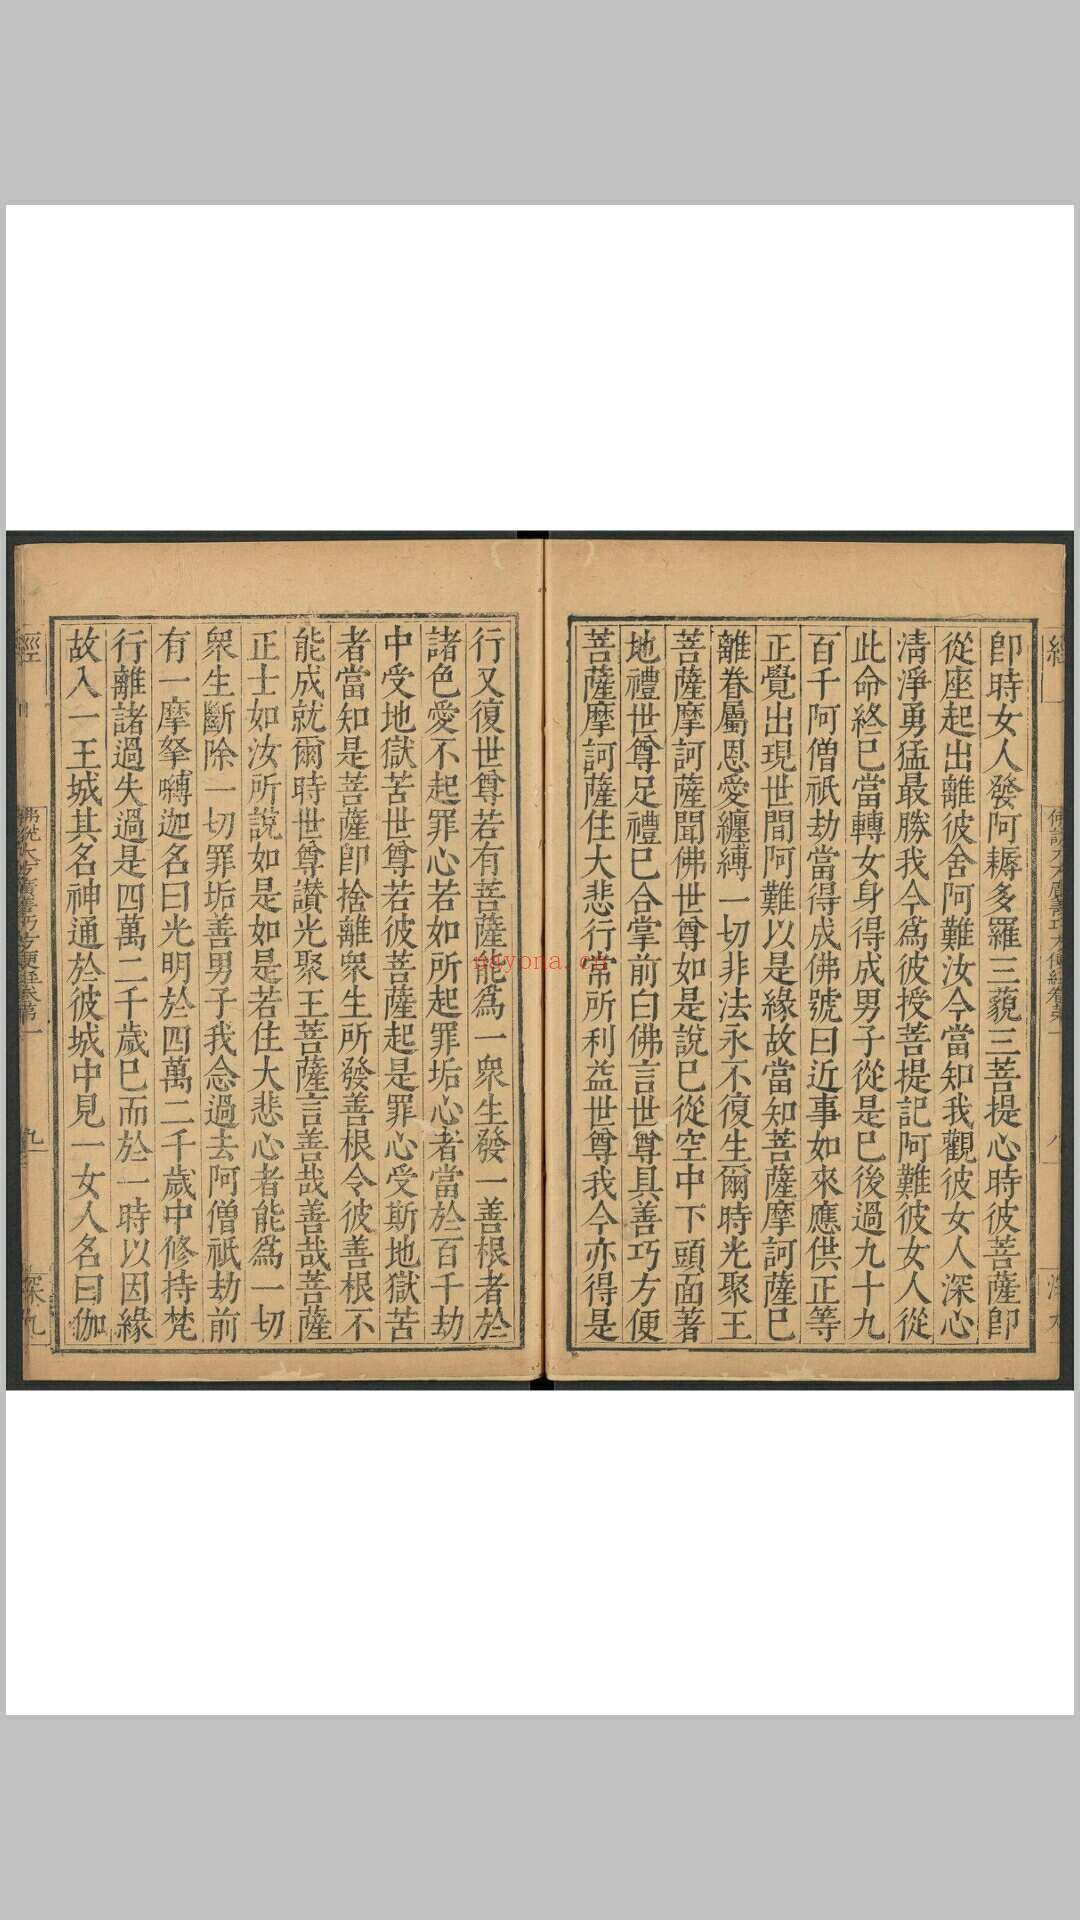 即時女人發阿耨多羅三藐三菩提心時彼菩薩即
從座起出離彼舍阿難汝今當知我觀彼女人深心
清淨勇猛最勝我今爲彼授菩提記阿難彼女人從
此命終已當轉女身得成男子從是已後過九十九
百千阿僧祇劫當得成佛號曰近事如來應供正等
正覺出現世間阿難以是緣故當知菩薩摩訶薩已
離眷屬恩愛纏縛一切非法永不復生爾時光聚王
菩薩摩訶薩聞佛世尊如是說已從空中下頭面著
地禮世尊足禮已合掌前白佛言世尊具善巧方便
菩薩摩訶薩住大悲行常所利益世尊我今亦得是
行又復世尊若有菩薩能爲一衆生發一善根者於
諸色愛不起罪心若如所起罪垢心者當於百千劫
中受地獄苦世尊若彼菩薩起是罪心受斯地獄苦
者當知是菩薩即捨離衆生所發善根令彼善根不
能成就爾時世尊讃光聚王菩薩言善哉善哉菩薩
正士如汝所說如是如是若住大悲心者能爲一切
衆生斷除一切罪垢善男子我念過去阿僧祇劫前
有一摩拏嚩迦名曰光明於四萬二千歲中修持梵
行離諸過失過是四萬二千歲已而於一時以因緣
故入一王城其名神通於彼城中見一女人名曰伽
經
佛說大方廣善巧方便經卷第一
九
深九
nayona.cn